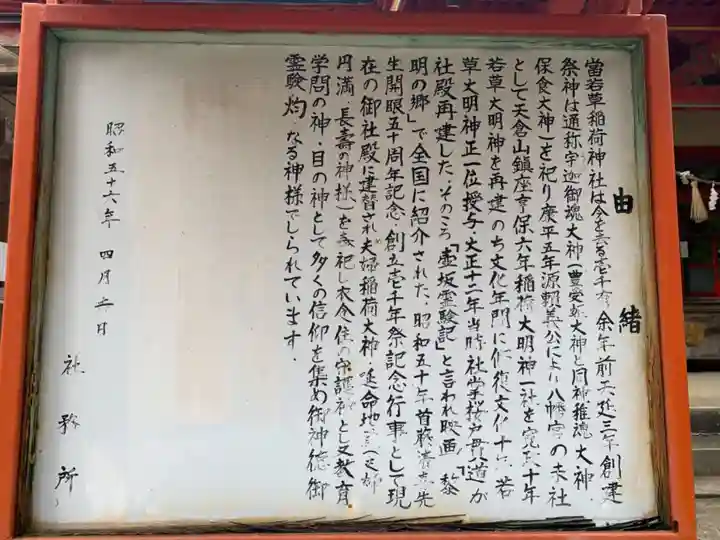 由緒
當若草稲荷神社は今を去る壱千有余年前天延三年創建
祭神は通称宇迦御魂大神(豊受姫大神と同神稚魂大神、
保食大神)を祀り康平五年源頼義公により八幡宮の末社
として天倉山鎮座享保六年稲荷大明神一社を寛政十年
若草大明神を再建のち文化年間に修復文化十年若
草大明神正一位授与大正十二年当時社掌桜戸貫八道が
社殿再建した.そのころ「壷坂霊験記」と言われ映画「黎
明の郷」で全国に紹介された、昭和五十年首藤 先
生開眼五十周年記念.創立壱千年祭記念行事として現
在の御社殿に建替され夫婦稲荷大神.延命地
円満.長壽の神様)を奉祀し衣食住の守護神とし又教育
学問の神.目の神として多くの信仰を集め御神徳御
霊験灼.なる神様でしられています.
昭和五十六年 四月 日
社務所